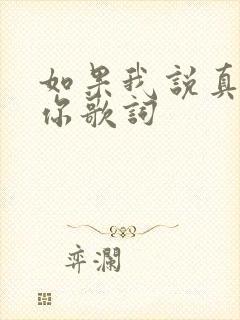 如果我說真
你歌詞
弈瀾